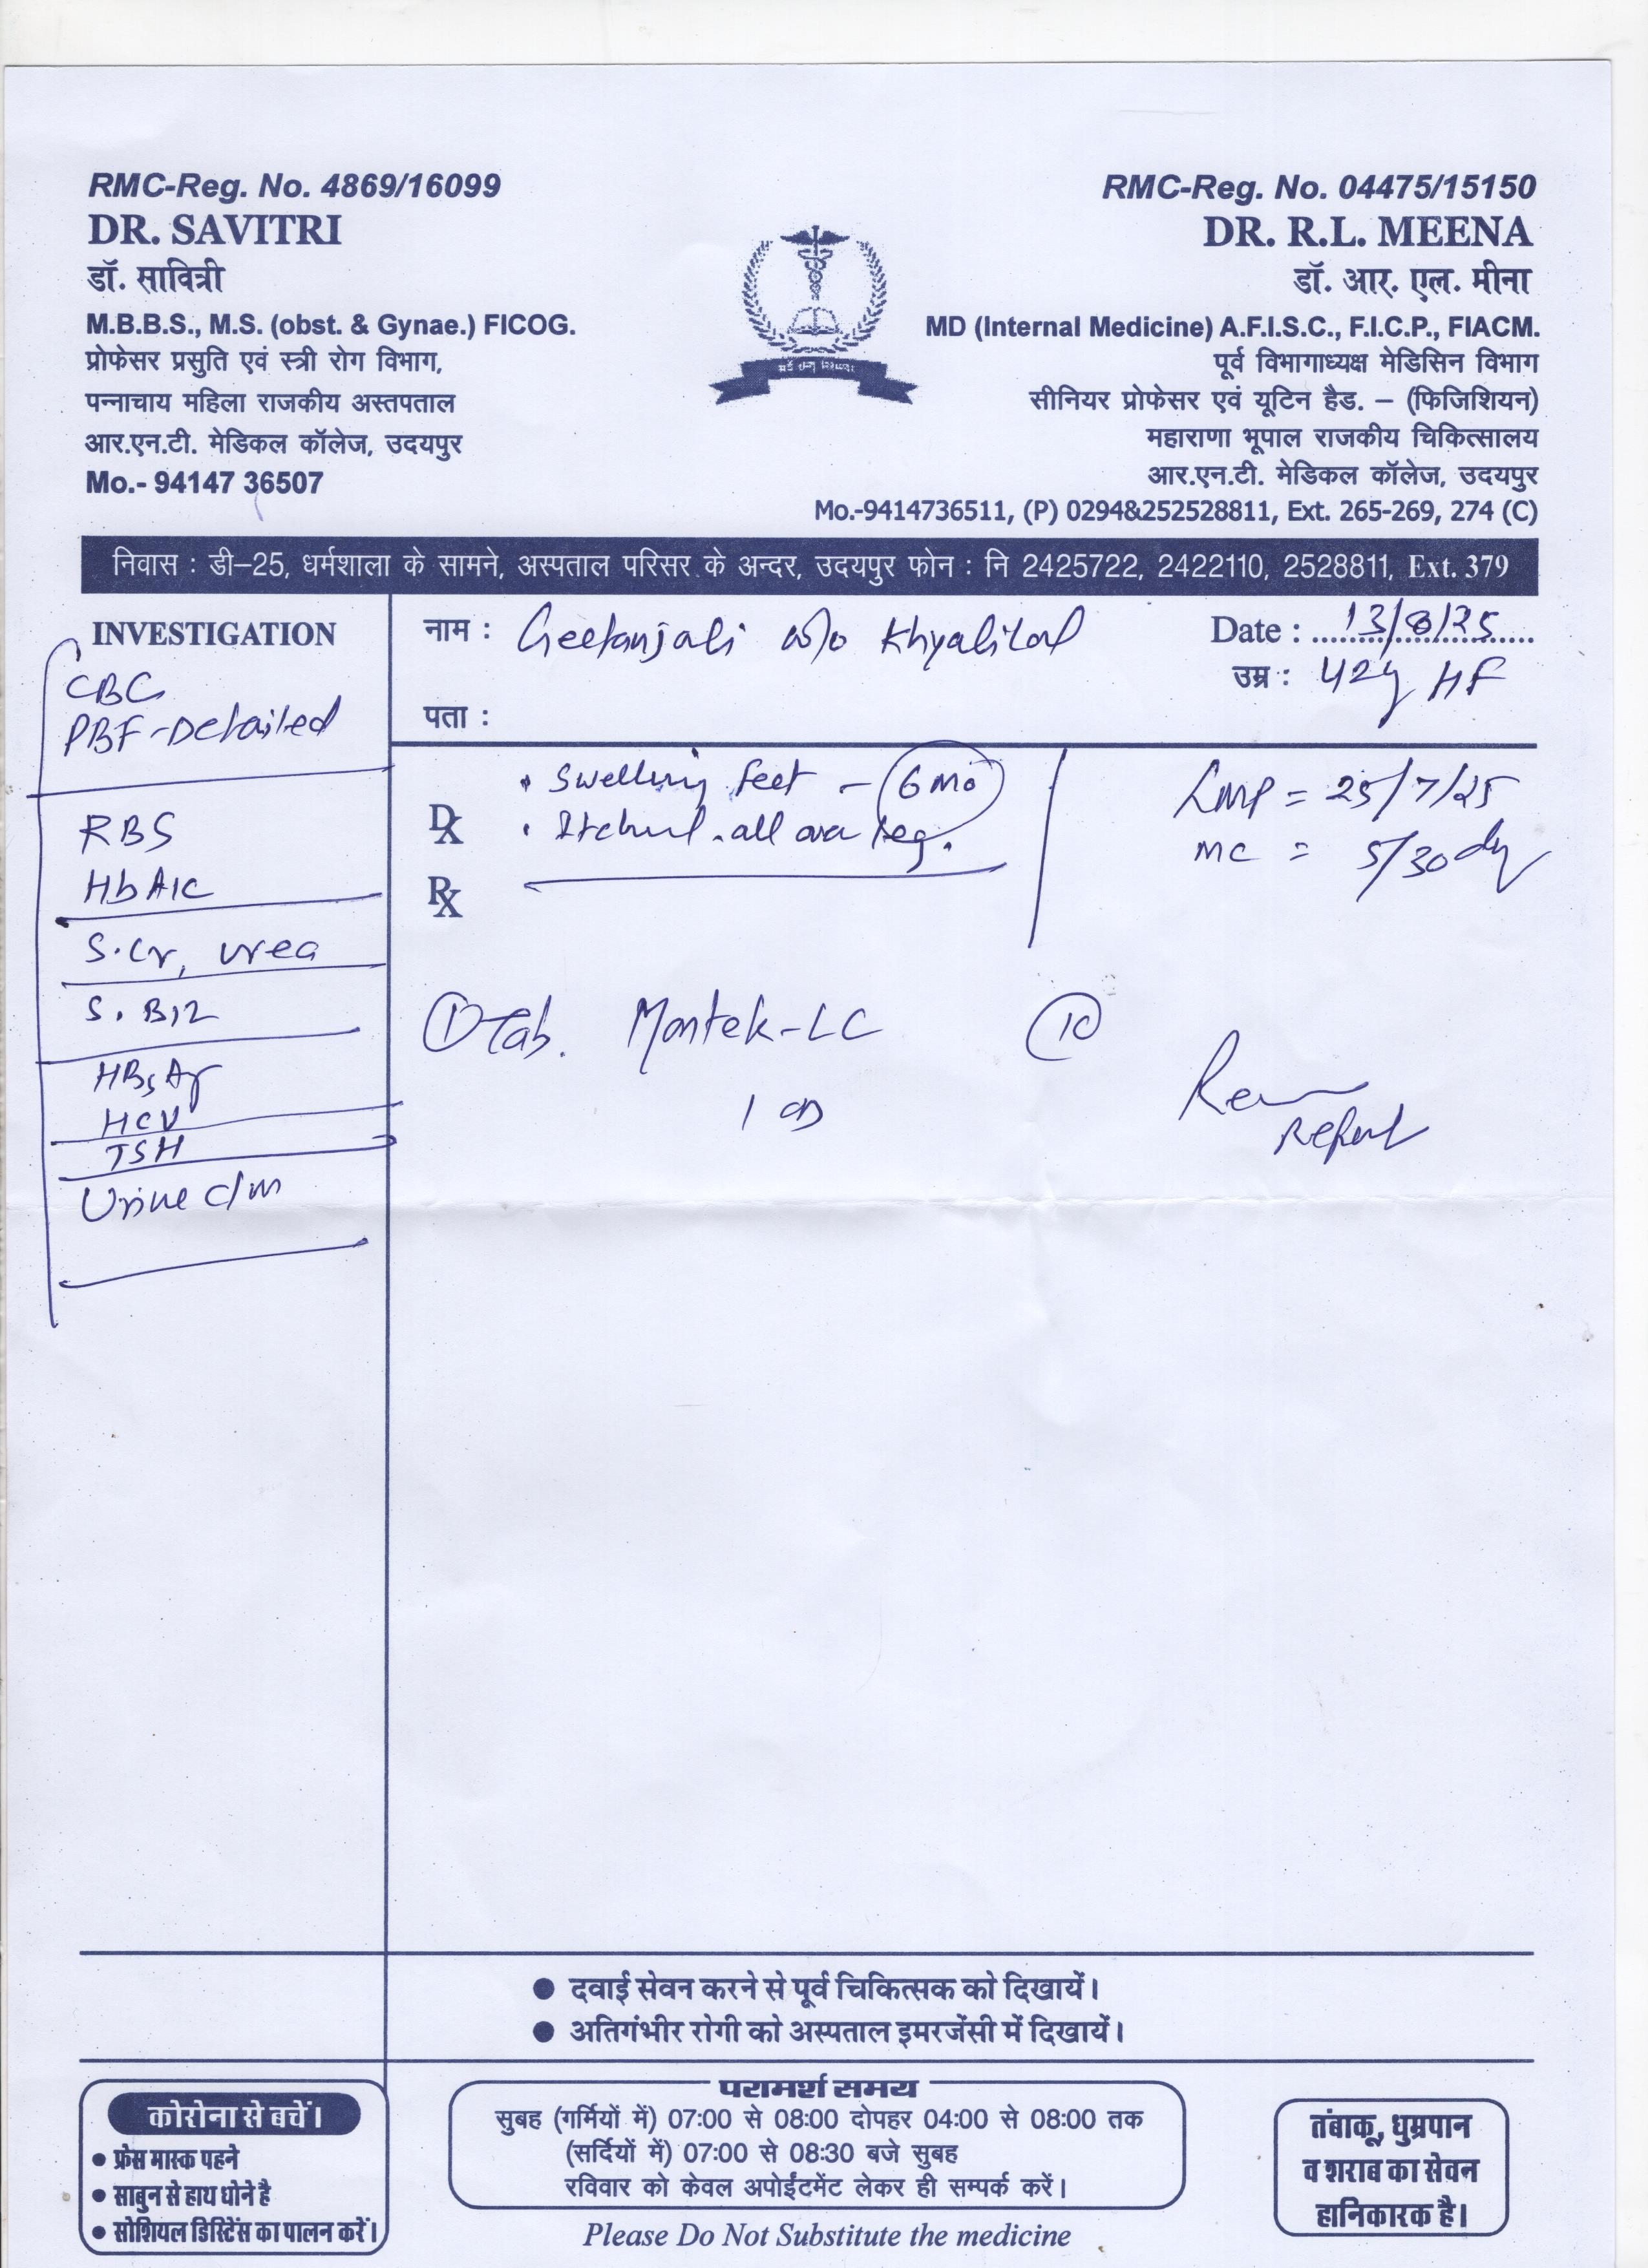 RMC-Reg. No. 4869/16099
DR. SAVITRI
डॉ. सावित्री
M.B.B.S., M.S. (obst. & Gynae.) FICOG.
प्रोफेसर प्रसुति एवं स्त्री रोग विभाग,
पन्नाचाय महिला राजकीय अस्तपताल
आर.एन.टी. मेडिकल कॉलेज, उदयपुर
Mo.- 94147 36507
RMC-Reg. No. 04475/15150
DR. R.L. MEENA
डॉ. आर. एल. मीना
MD (Internal Medicine) A.F.I.S.C., F.I.C.P., FIACM.
पूर्व विभागाध्यक्ष मेडिसिन विभाग
सीनियर प्रोफेसर एवं यूटिन हैड. – (फिजिशियन)
महाराणा भूपाल राजकीय चिकित्सालय
आर.एन.टी. मेडिकल कॉलेज, उदयपुर
Mo.-9414736511, (P) 0294&252528811, Ext. 265-269, 274 (C)
निवास : डी–25, धर्मशाला के सामने, अस्पताल परिसर के अन्दर, उदयपुर फोन : नि 2425722, 2422110, 2528811, Ext. 379
INVESTIGATION
CBC
PBF-Detailed
RBS
HbA1C
S.Cr, urea
S. B12
HBsAg
HCV
TSH
Urine c/m
नाम : Geetanjali w/o Khyalilal
Date : 13/8/25
उम्र : 42y HF
पता :
• Swelling feet – 6 mo
Dx • Itching - all over leg.
Rx
LMP = 25/7/25
MC = 5/30 day
① Tab. Montek-LC 10
1 OD
Report
● दवाई सेवन करने से पूर्व चिकित्सक को दिखायें।
● अतिगंभीर रोगी को अस्पताल इमरजेंसी में दिखायें।
कोरोना से बचें।
• फ्रेस मास्क पहने
• साबुन से हाथ धोने है
• सोशियल डिस्टिेंस का पालन करें।
परामर्श समय
सुबह (गर्मियों में) 07:00 से 08:00 दोपहर 04:00 से 08:00 तक
(सर्दियों में) 07:00 से 08:30 बजे सुबह
रविवार को केवल अपोईंटमेंट लेकर ही सम्पर्क करें।
Please Do Not Substitute the medicine
तंबाकू, धुम्रपान
व शराब का सेवन
हानिकारक है।